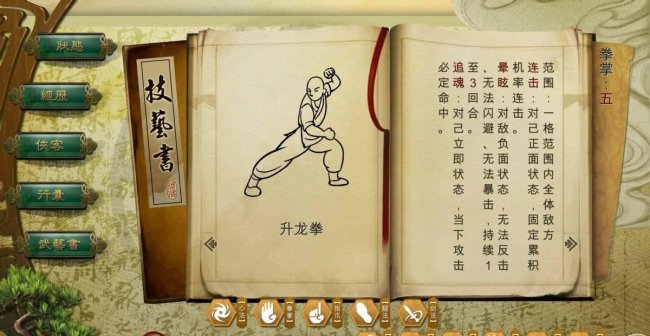 狀態
經歷
俠客
行囊
武藝書
技藝書
升龙拳
拳掌:五
范围:一格范围内全体敌方
连击:对己正面状态,固定累积
机率连击。
晕眩:对敌负面状态,无法反击
、无法闪避、无法暴击,持续1
至3回合。
追魂:对己立即状态,当下攻击
必定命中。